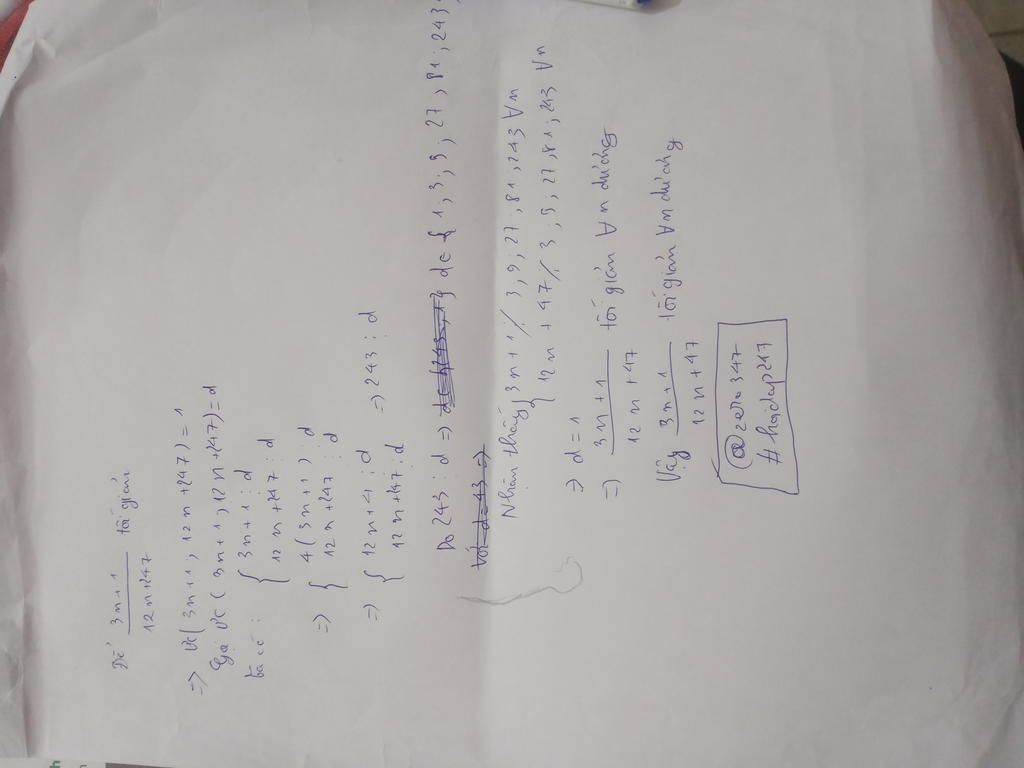 Để 3n+1 / 12n+247 tối giản
=> ƯC(3n+1, 12n+247) = 1
Gọi ƯC(3n+1, 12n+247) = d
ta có : { 3n+1 ⋮ d
12n+247 ⋮ d
=> { 4(3n+1) ⋮ d
12n+247 ⋮ d
=> { 12n+4 ⋮ d
12n+247 ⋮ d => 243 ⋮ d
Do 243 ⋮ d => d ∈ { 1, 3; 9; 27, 81; 243
Với d = 43 =>
Nhận thấy { 3n+1 ⋮̸ 3, 9, 27, 81, 243 ∀n
12n + 47 ⋮̸ 3; 9, 27, 81, 243 ∀n
=> d = 1
=> 3n+1 / 12n+47 tối giản ∀n dương
Vậy 3n+1 / 12n+47 tối giản ∀n dương
@zero347
#hoidap247